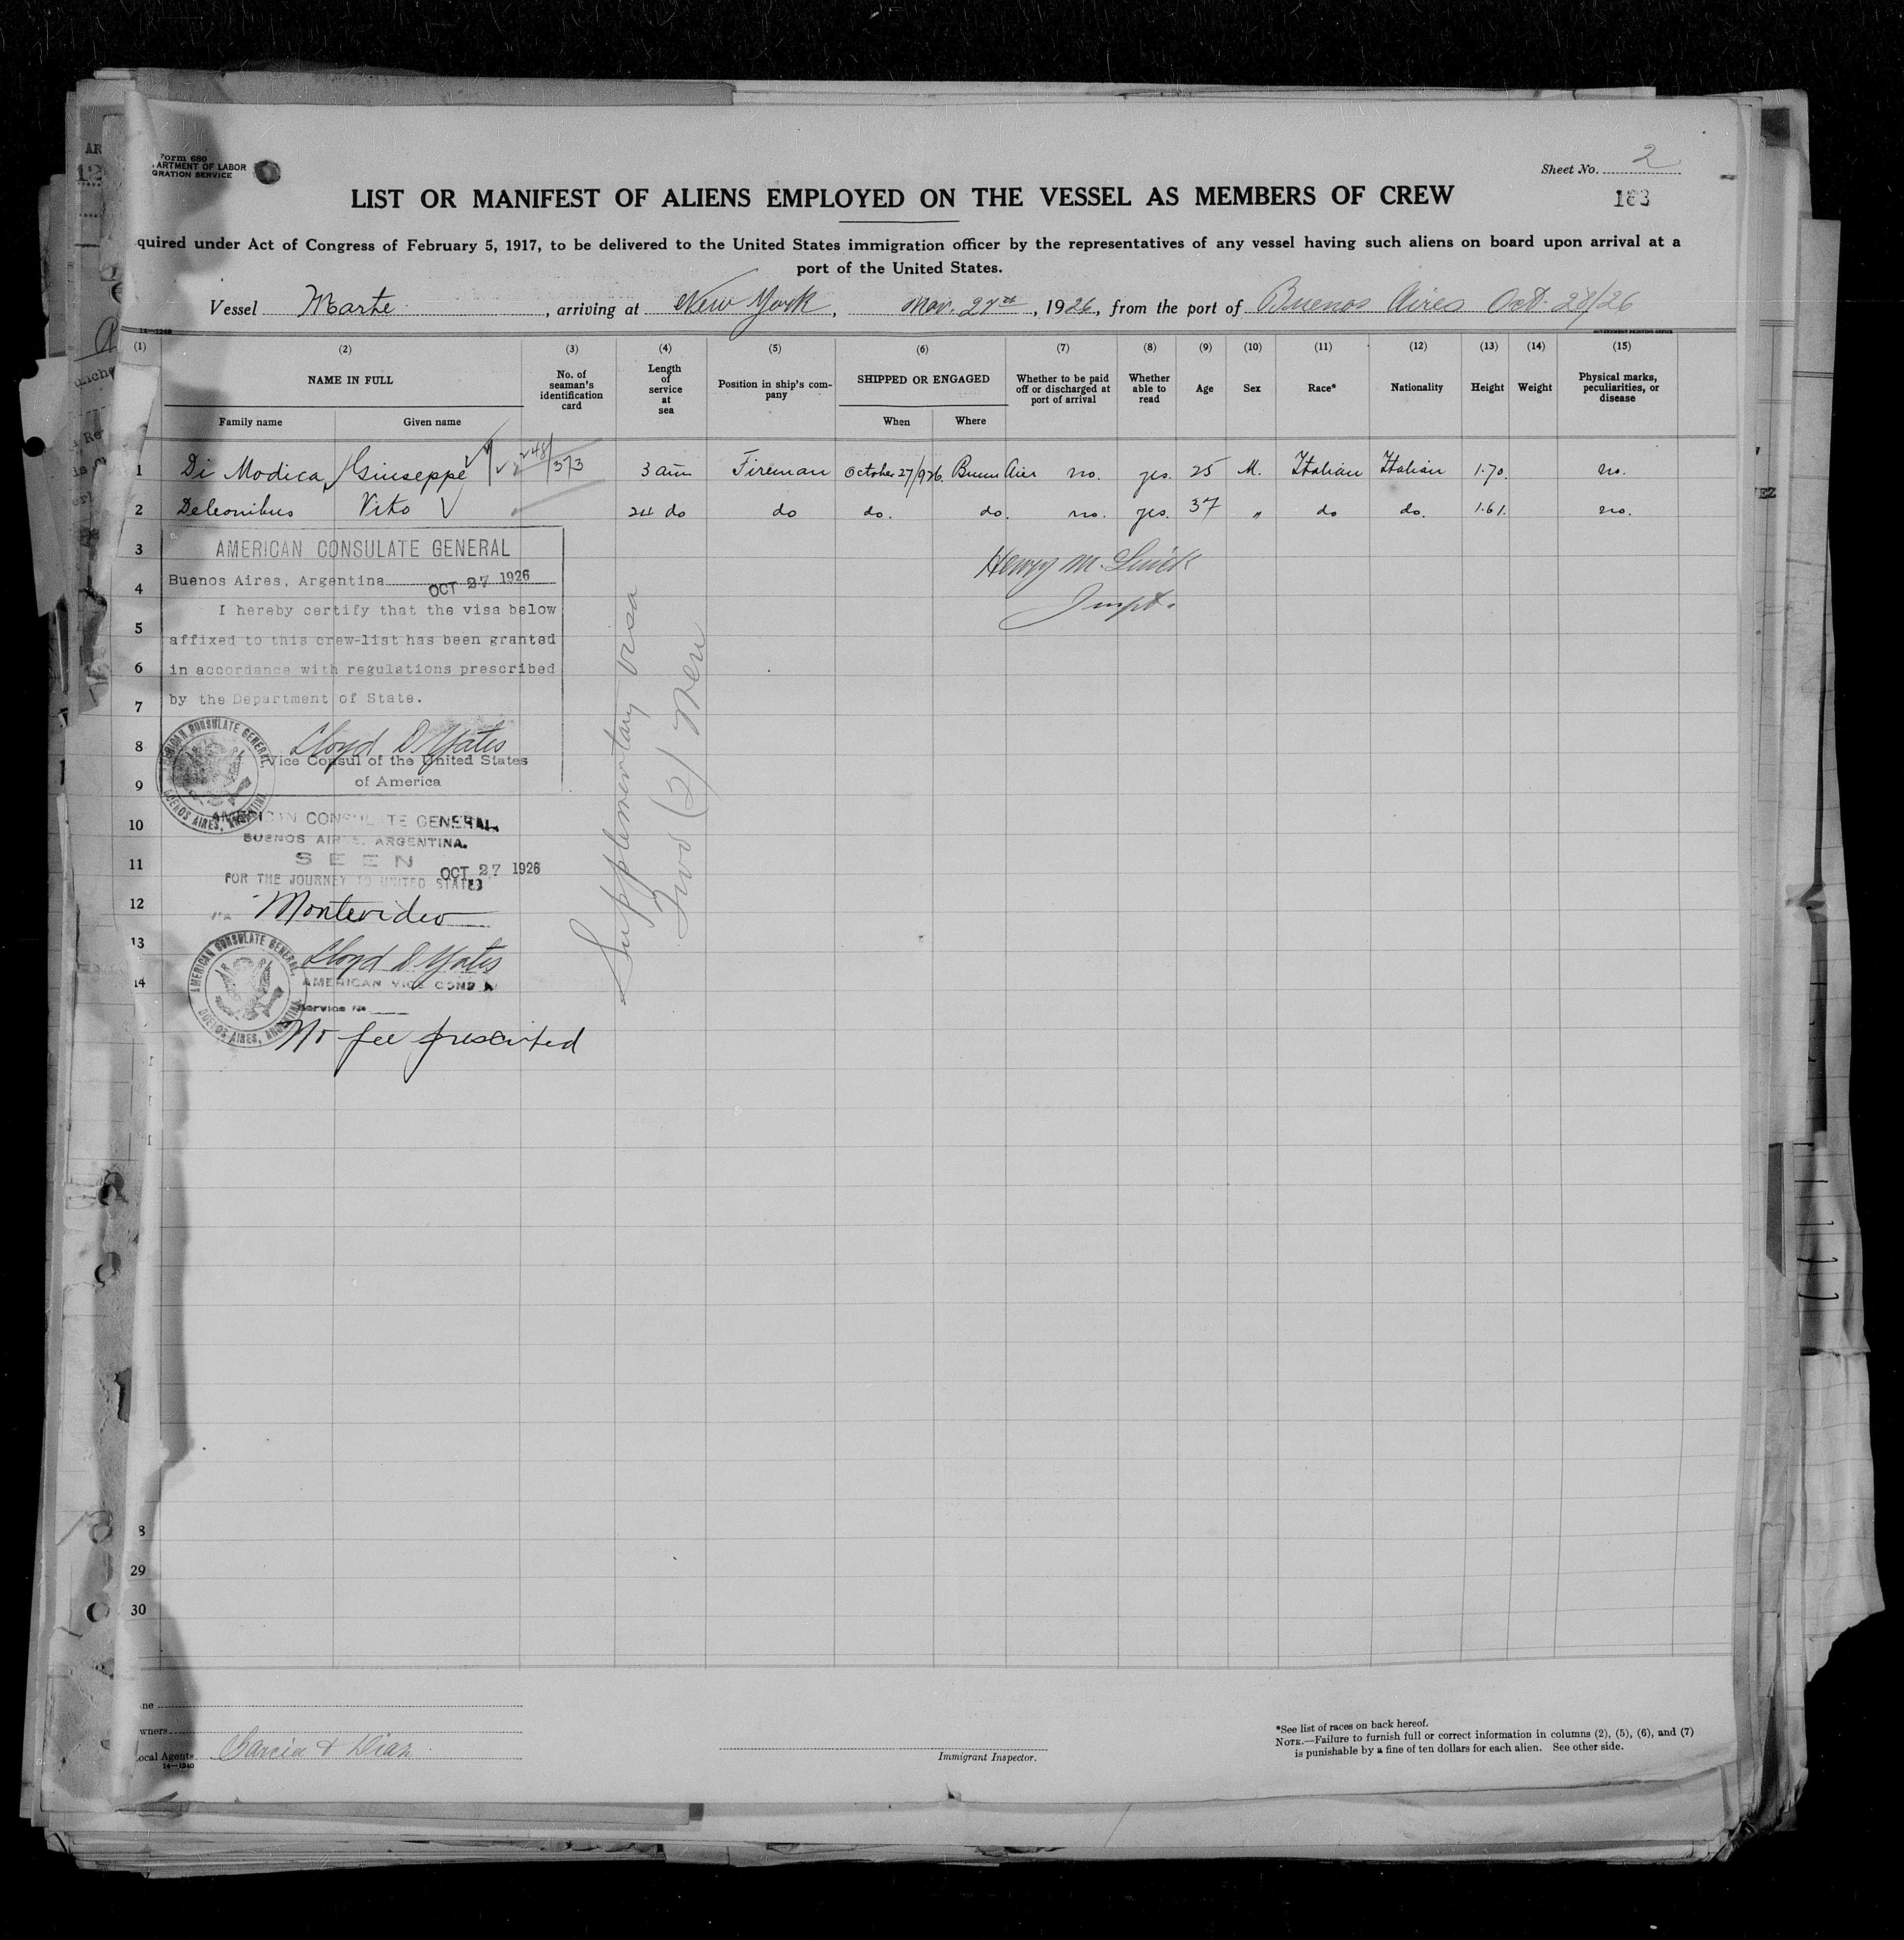 Form 680
ARTMENT OF LABOR
GRATION SERVICE
Sheet No. 2
183
LIST OR MANIFEST OF ALIENS EMPLOYED ON THE VESSEL AS MEMBERS OF CREW
quired under Act of Congress of February 5, 1917, to be delivered to the United States immigration officer by the representatives of any vessel having such aliens on board upon arrival at a
port of the United States.
Vessel Marte, arriving at New York, Nov. 27th, 1926, from the port of Buenos Aires Oct. 28/26
14—1240
GOVERNMENT PRINTING OFFICE
(1) (2) (3) (4) (5) (6) (7) (8) (9) (10) (11) (12) (13) (14) (15)
NAME IN FULL
Family name Given name
No. of seaman's identification card
Length of service at sea
Position in ship's company
SHIPPED OR ENGAGED
When Where
Whether to be paid off or discharged at port of arrival
Whether able to read
Age
Sex
Race*
Nationality
Height
Weight
Physical marks, peculiarities, or disease
1 Di Modica Giuseppe 373 3 Fireman October 27/926. no. yes. 25 M. Italian Italian 1.70. no.
2 Deleonibus Vito 24 do do do. do. no. yes. 37 " do do. 1.61. no.
3
4
5
6
7
8
9
10
11
12
13
14
AMERICAN CONSULATE GENERAL
Buenos Aires, Argentina OCT 27 1926
I hereby certify that the visa below
affixed to this crew-list has been granted
in accordance with regulations prescribed
by the Department of State.
Lloyd D. Yates
Vice Consul of the United States
of America
AMERICAN CONSULATE GENERAL,
BUENOS AIRES, ARGENTINA
AMERICAN CONSULATE GENERAL,
BUENOS AIRES, ARGENTINA.
SEEN
OCT 27 1926
FOR THE JOURNEY TO UNITED STATES
VIA Montevideo
Lloyd D. Yates
AMERICAN VICE CONSUL
AMERICAN CONSULATE GENERAL,
BUENOS AIRES, ARGENTINA
Service No
No fee prescribed
Supplementary visa
Two (2) men
Henry M.
Inspt.
8
29
30
ne
wners
ocal Agents Garcia & Diaz
14—1240
Immigrant Inspector.
*See list of races on back hereof.
NOTE.—Failure to furnish full or correct information in columns (2), (5), (6), and (7)
is punishable by a fine of ten dollars for each alien. See other side.